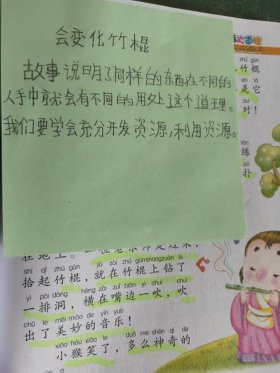 会变化竹棍
故事说明了同样的东西在不同的
人手中就会有不同的用处这个道理。
我们要学会充分开发资源，利用资源。
竹棍
是它
对！
练
扑
在地上。
shí qǐ zhú gùn jiù zài zhú gùn shang zuān le
拾起竹棍，就在竹棍上钻了
yì pái dòng héng zài zuǐ biān yì chuī chuī
一排洞，横在嘴边一吹，吹
chū le měi miào de yīn yuè
出了美妙的音乐！
xiǎo hóu xiào le duō me shén qí de
小猴笑了，多么神奇的